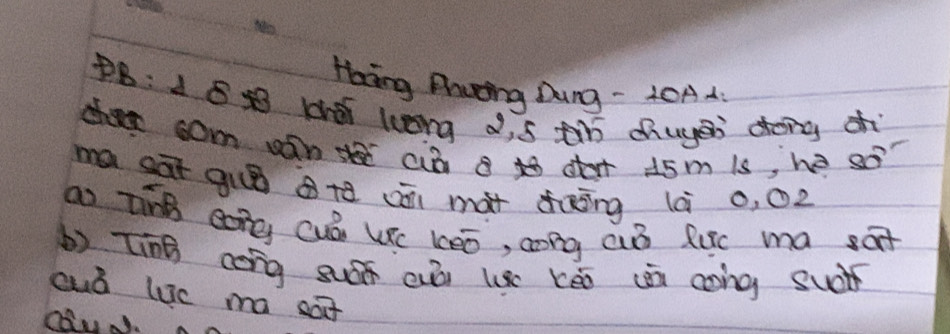 Hoàng Phương Dung - 10A1.
ĐB: 1 ô tô khối lượng 2,5 tấn chuyển động đi
được 50m vận tốc của ô tô đạt 15m/s, hệ số
ma sát giữa ô tô với mặt đường là 0,02
a) Tính công của lực kéo, công của lực ma sát
b) Tính công suất của lực kéo với công suất
của lực ma sát
câu 2: